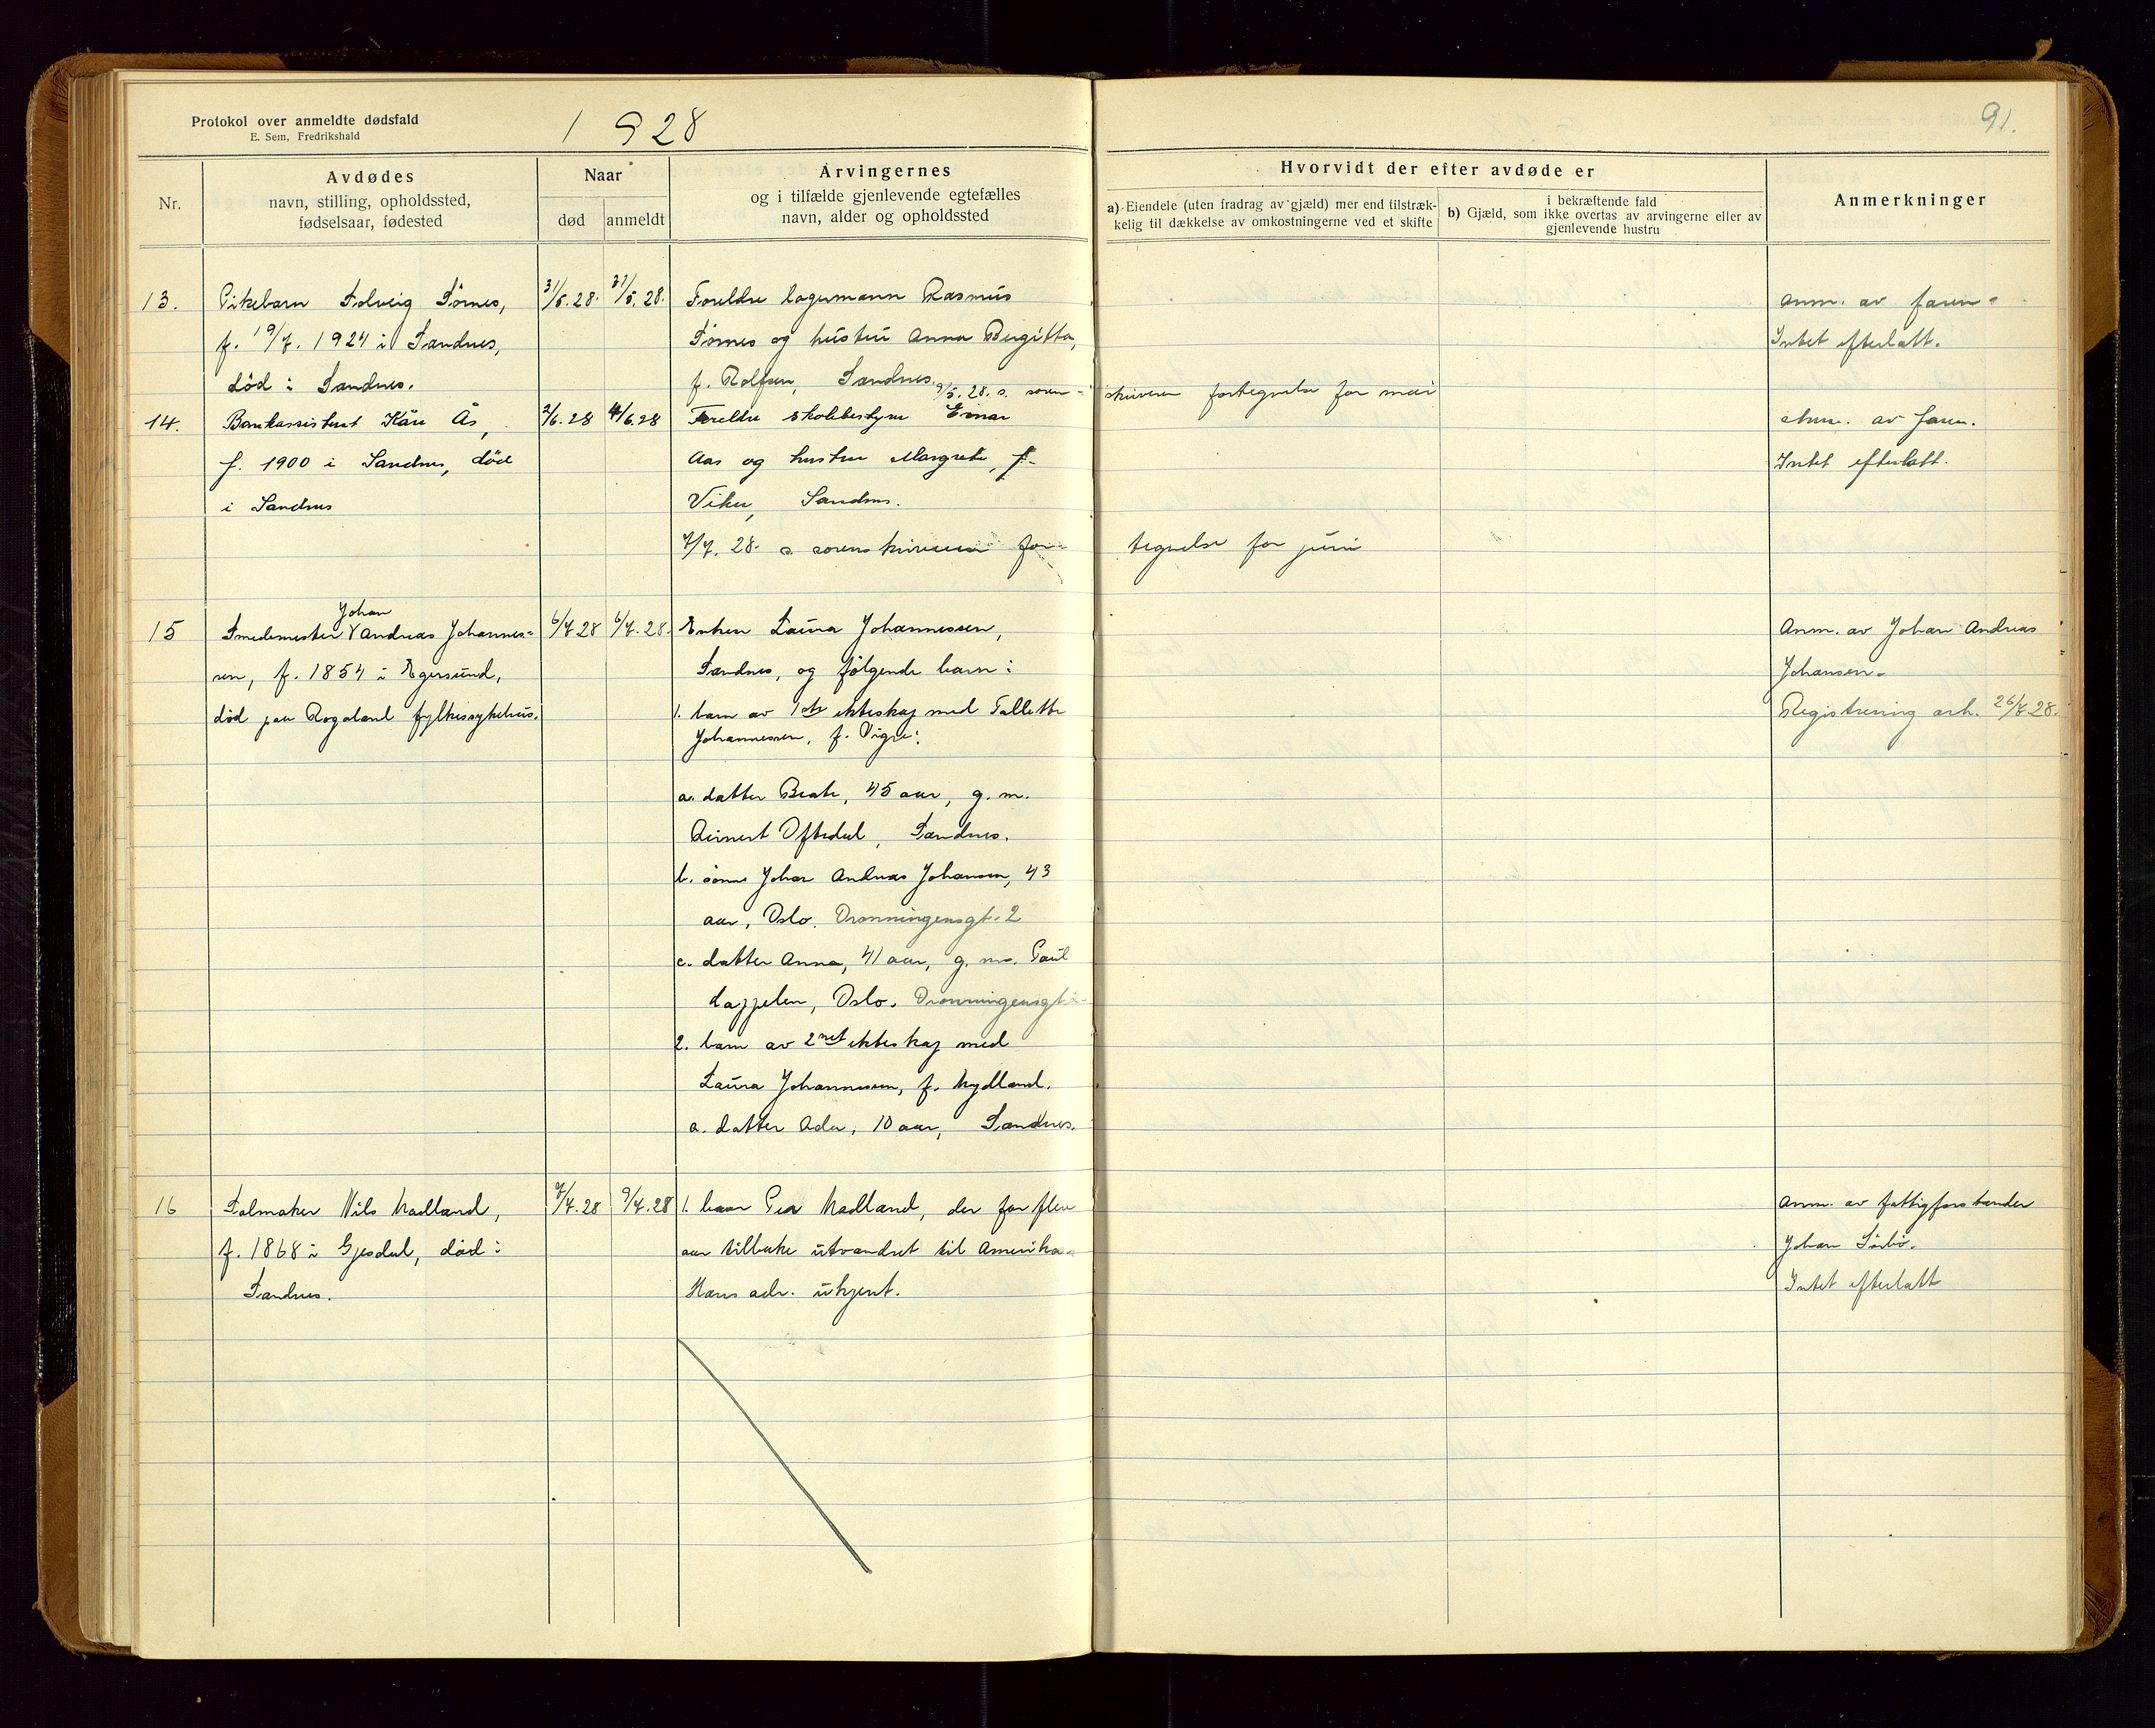 Protokol over anmeldte dødsfald
E. Sem, Fredrikshald
1928
91.
Nr.
Avdødes
navn, stilling, opholdssted,
fødselsaar, fødested
Naar
død
anmeldt
Arvingernes
og i tilfælde gjenlevende egtefælles
navn, alder og opholdssted
Hvorvidt der efter avdøde er
a) Eiendele (uten fradrag av gjæld) mer end tilstræk-
kelig til dækkelse av omkostningerne ved et skifte
i bekræftende fald
b) Gjæld, som ikke overtas av arvingerne eller av
gjenlevende hustru
Anmerkninger
13.
Pikebarn Solveig Sörnes,
f. 19/7. 1924 i Sandnes,
död i Sandnes.
31/5.28.
31/5.28.
Foreldre lagermann Rasmus
Sörnes og hustru Anna Bergitta,
f. Rolfsen, Sandnes.
9/5.28. s. soren-
skriveren fortegnelse for mai
Anm. av faren.
Intet efterlatt.
14.
Bankassistent Kåre Ås,
f. 1900 i Sandnes, död
i Sandnes
2/6.28
4/6.28
Foreldre skolebestyrer Einar
Aas og hustru Margrete, f.
Vike, Sandnes.
Anm. av faren.
Intet efterlatt.
7/7.28. s. sorenskriveren for-
tegnelse for juni
15
Johan
Smedemester Andreas Johannes-
sen, f. 1854 i Egersund,
död paa Rogaland fylkessykehus.
6/7 28
6/7.28.
Enken Laura Johannessen,
Sandnes, og følgende barn:
1. barn av 1ste ekteskap med Tallette
Johannessen, f. Vigre:
a. datter Beate, 45 aar, g. m.
Reinert Oftedal, Sandnes.
b. sönn Johan Andreas Johansen, 43
aar, Oslo. Dronningensgt. 2
c. datter Anna, 41 aar, g. m. Paul
Lappelen, Oslo. Dronningensgt. 2
2. barn av 2net ekteskap med
Laura Johannessen, f. Nydland.
a. datter Ada, 10 aar, Sandnes.
Anm. av Johan Andreas
Johansen.
Registrering avh. 26/7.28.
16
Salmaker Nils Madland,
f. 1868 i Gjesdal, död i
Sandnes.
7/7.28
9/7.28
1. barn Per Madland, der for flere
aar tilbake utvandret til Amerika.
Hans adr. ukjent.
Anm. av fattigforstander
Johan Sörbö.
Intet efterlatt